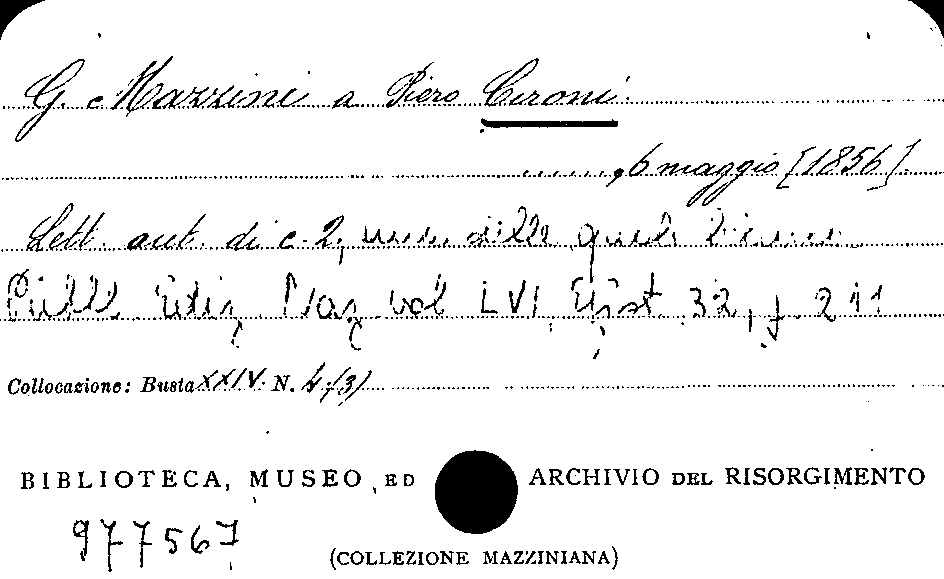 G. Mazzini a Piero Cironi.
......, 6 maggio [1856].
Lett. aut. di c. 2, una delle quali bianca
Pubbl. Ediz. Naz. vol LVI, Epist. 32, p. 211
Collocazione: Busta XXIV. N. 4 (3)
BIBLIOTECA, MUSEO ED ARCHIVIO DEL RISORGIMENTO
977567
(COLLEZIONE MAZZINIANA)